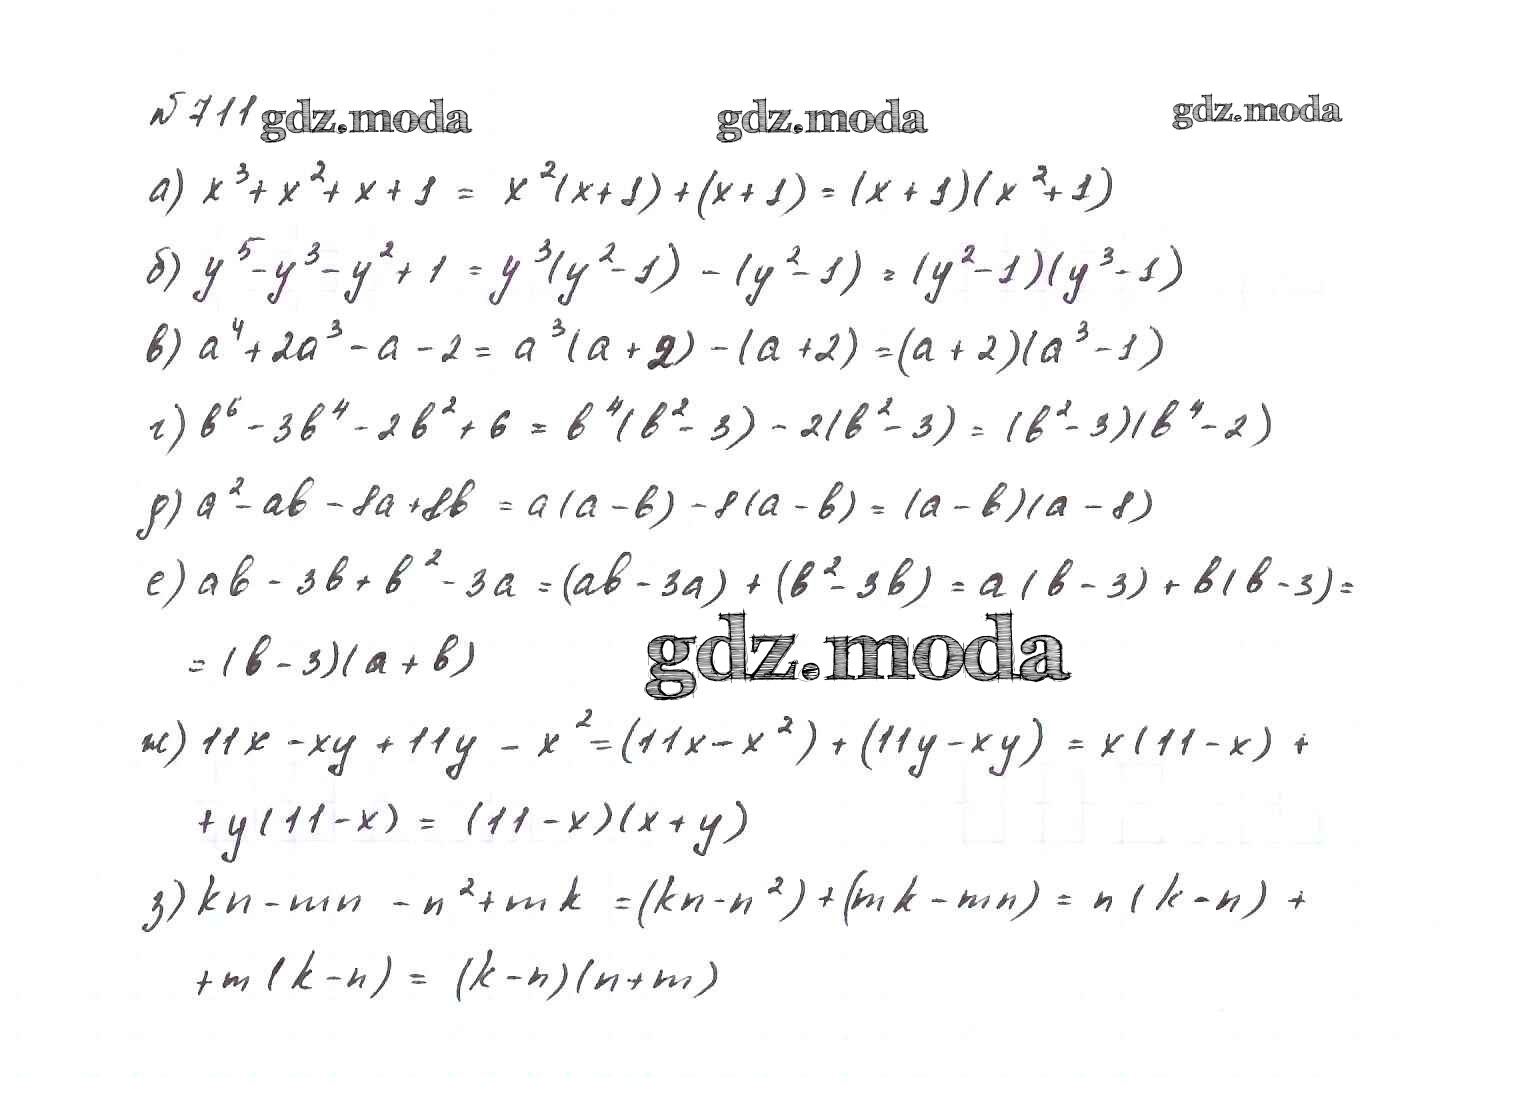 №711 gdz.moda gdz.moda gdz.moda
а) x³+x²+x+1 = x²(x+1)+(x+1)=(x+1)(x²+1)
б) y⁵-y³-y²+1 = y³(y²-1)-(y²-1)=(y²-1)(y³-1)
в) a⁴+2a³-a-2= a³(a+2)-(a+2)=(a+2)(a³-1)
г) b⁶-3b⁴-2b²+6 = b⁴(b²-3)-2(b²-3)=(b²-3)(b⁴-2)
д) a²-ab-8a+8b = a(a-b)-8(a-b)=(a-b)(a-8)
е) ab-3b+b²-3a=(ab-3a)+(b²-3b)=a(b-3)+b(b-3)=
=(b-3)(a+b) gdz.moda
ж) 11x-xy+11y-x²=(11x-x²)+(11y-xy)=x(11-x)+
+y(11-x)=(11-x)(x+y)
з) kn-mn-n²+mk=(kn-n²)+(mk-mn)=n(k-n)+
+m(k-n)=(k-n)(n+m)